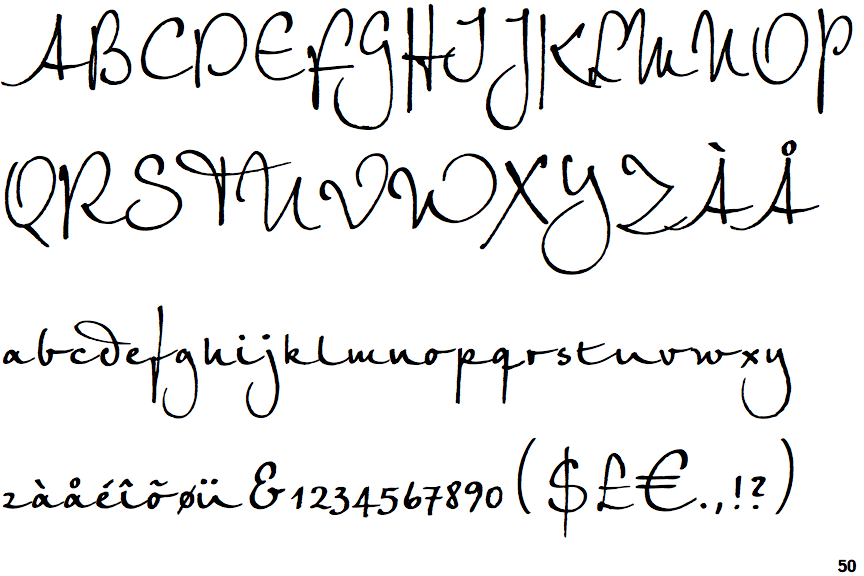 ABCDEFGHIJKLMNOP
QRSTUVWXYZÀÅ
abcdefghijklmnopqrstuvwxy
zàåéîõøü&1234567890($£€.,!?)
50